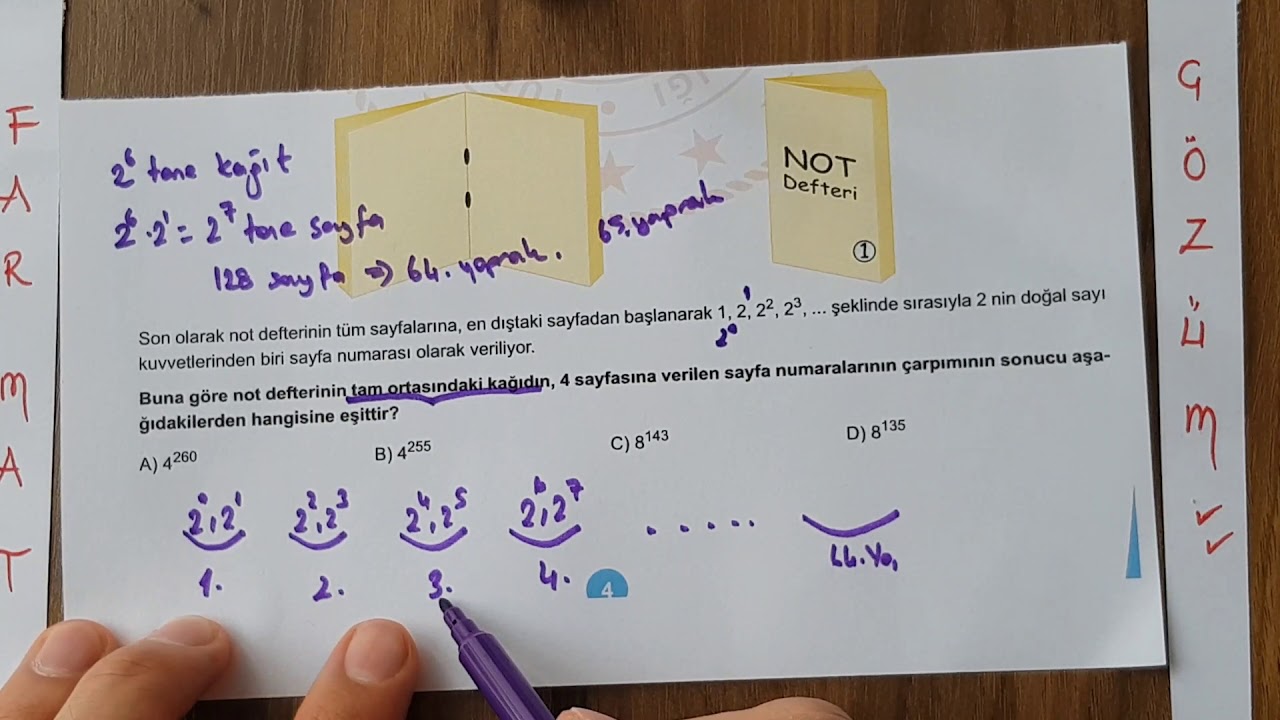 F
A
R
M
A
T
2⁶ tane kağıt
2⁶·2¹ = 2⁷ tane sayfa
128 sayfa ⇒ 64. yaprak.
65. yaprak
NOT
Defteri
1
Son olarak not defterinin tüm sayfalarına, en dıştaki sayfadan başlanarak 1, 2, 2², 2³, ... şeklinde sırasıyla 2 nin doğal sayı
2⁰
1
kuvvetlerinden biri sayfa numarası olarak veriliyor.
Buna göre not defterinin tam ortasındaki kağıdın, 4 sayfasına verilen sayfa numaralarının çarpımının sonucu aşa-
ğıdakilerden hangisine eşittir?
A) 4²⁶⁰ B) 4²⁵⁵ C) 8¹⁴³ D) 8¹³⁵
2⁰, 2¹ 2², 2³ 2⁴, 2⁵ 2⁶, 2⁷ . . . . .
1. 2. 3. 4. 64. Ya,
4
G
Ö
Z
Ü
M